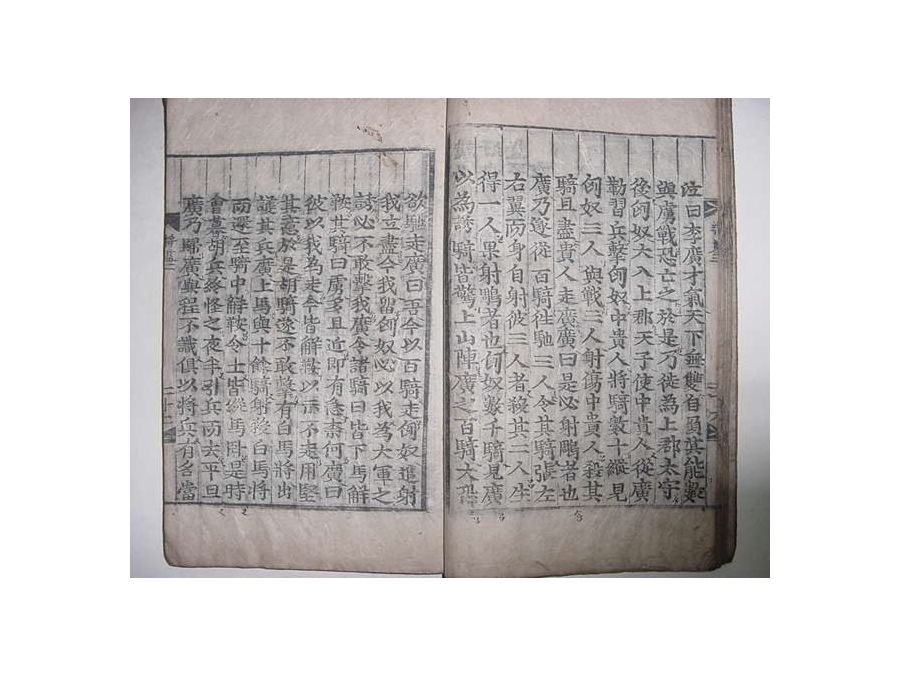 泣曰李廣才氣天下無雙自負其能數
與虜戰恐亡之於是乃徙為上郡太守
後匈奴大入上郡天子使中貴人從廣
勒習兵擊匈奴中貴人將騎數十縱見
匈奴三人與戰三人射傷中貴人殺其
騎且盡貴人走廣廣曰是必射鵰者也
廣乃遂從百騎往馳三人令其騎張左
右翼而身自射彼三人者殺其二人生
得一人果射鵰者也匈奴數千騎見廣
以為誘騎皆驚上山陣廣之百騎大恐
欲馳走廣曰吾今以百騎走匈奴追射
我立盡今我留匈奴必以我為大軍之
誘必不敢擊我廣令諸騎曰皆下馬解
鞍其騎曰虜多且近即有急柰何廣曰
彼以我為走今皆解鞍以示不走用堅
其意於是胡騎遂不敢擊有白馬將出
護其兵廣上馬與十餘騎射殺白馬將
而還至騎中解鞍令士皆縱馬臥是時
會暮胡兵終怪之夜半引兵而去平旦
廣乃歸廣與程不識俱以將兵有名當